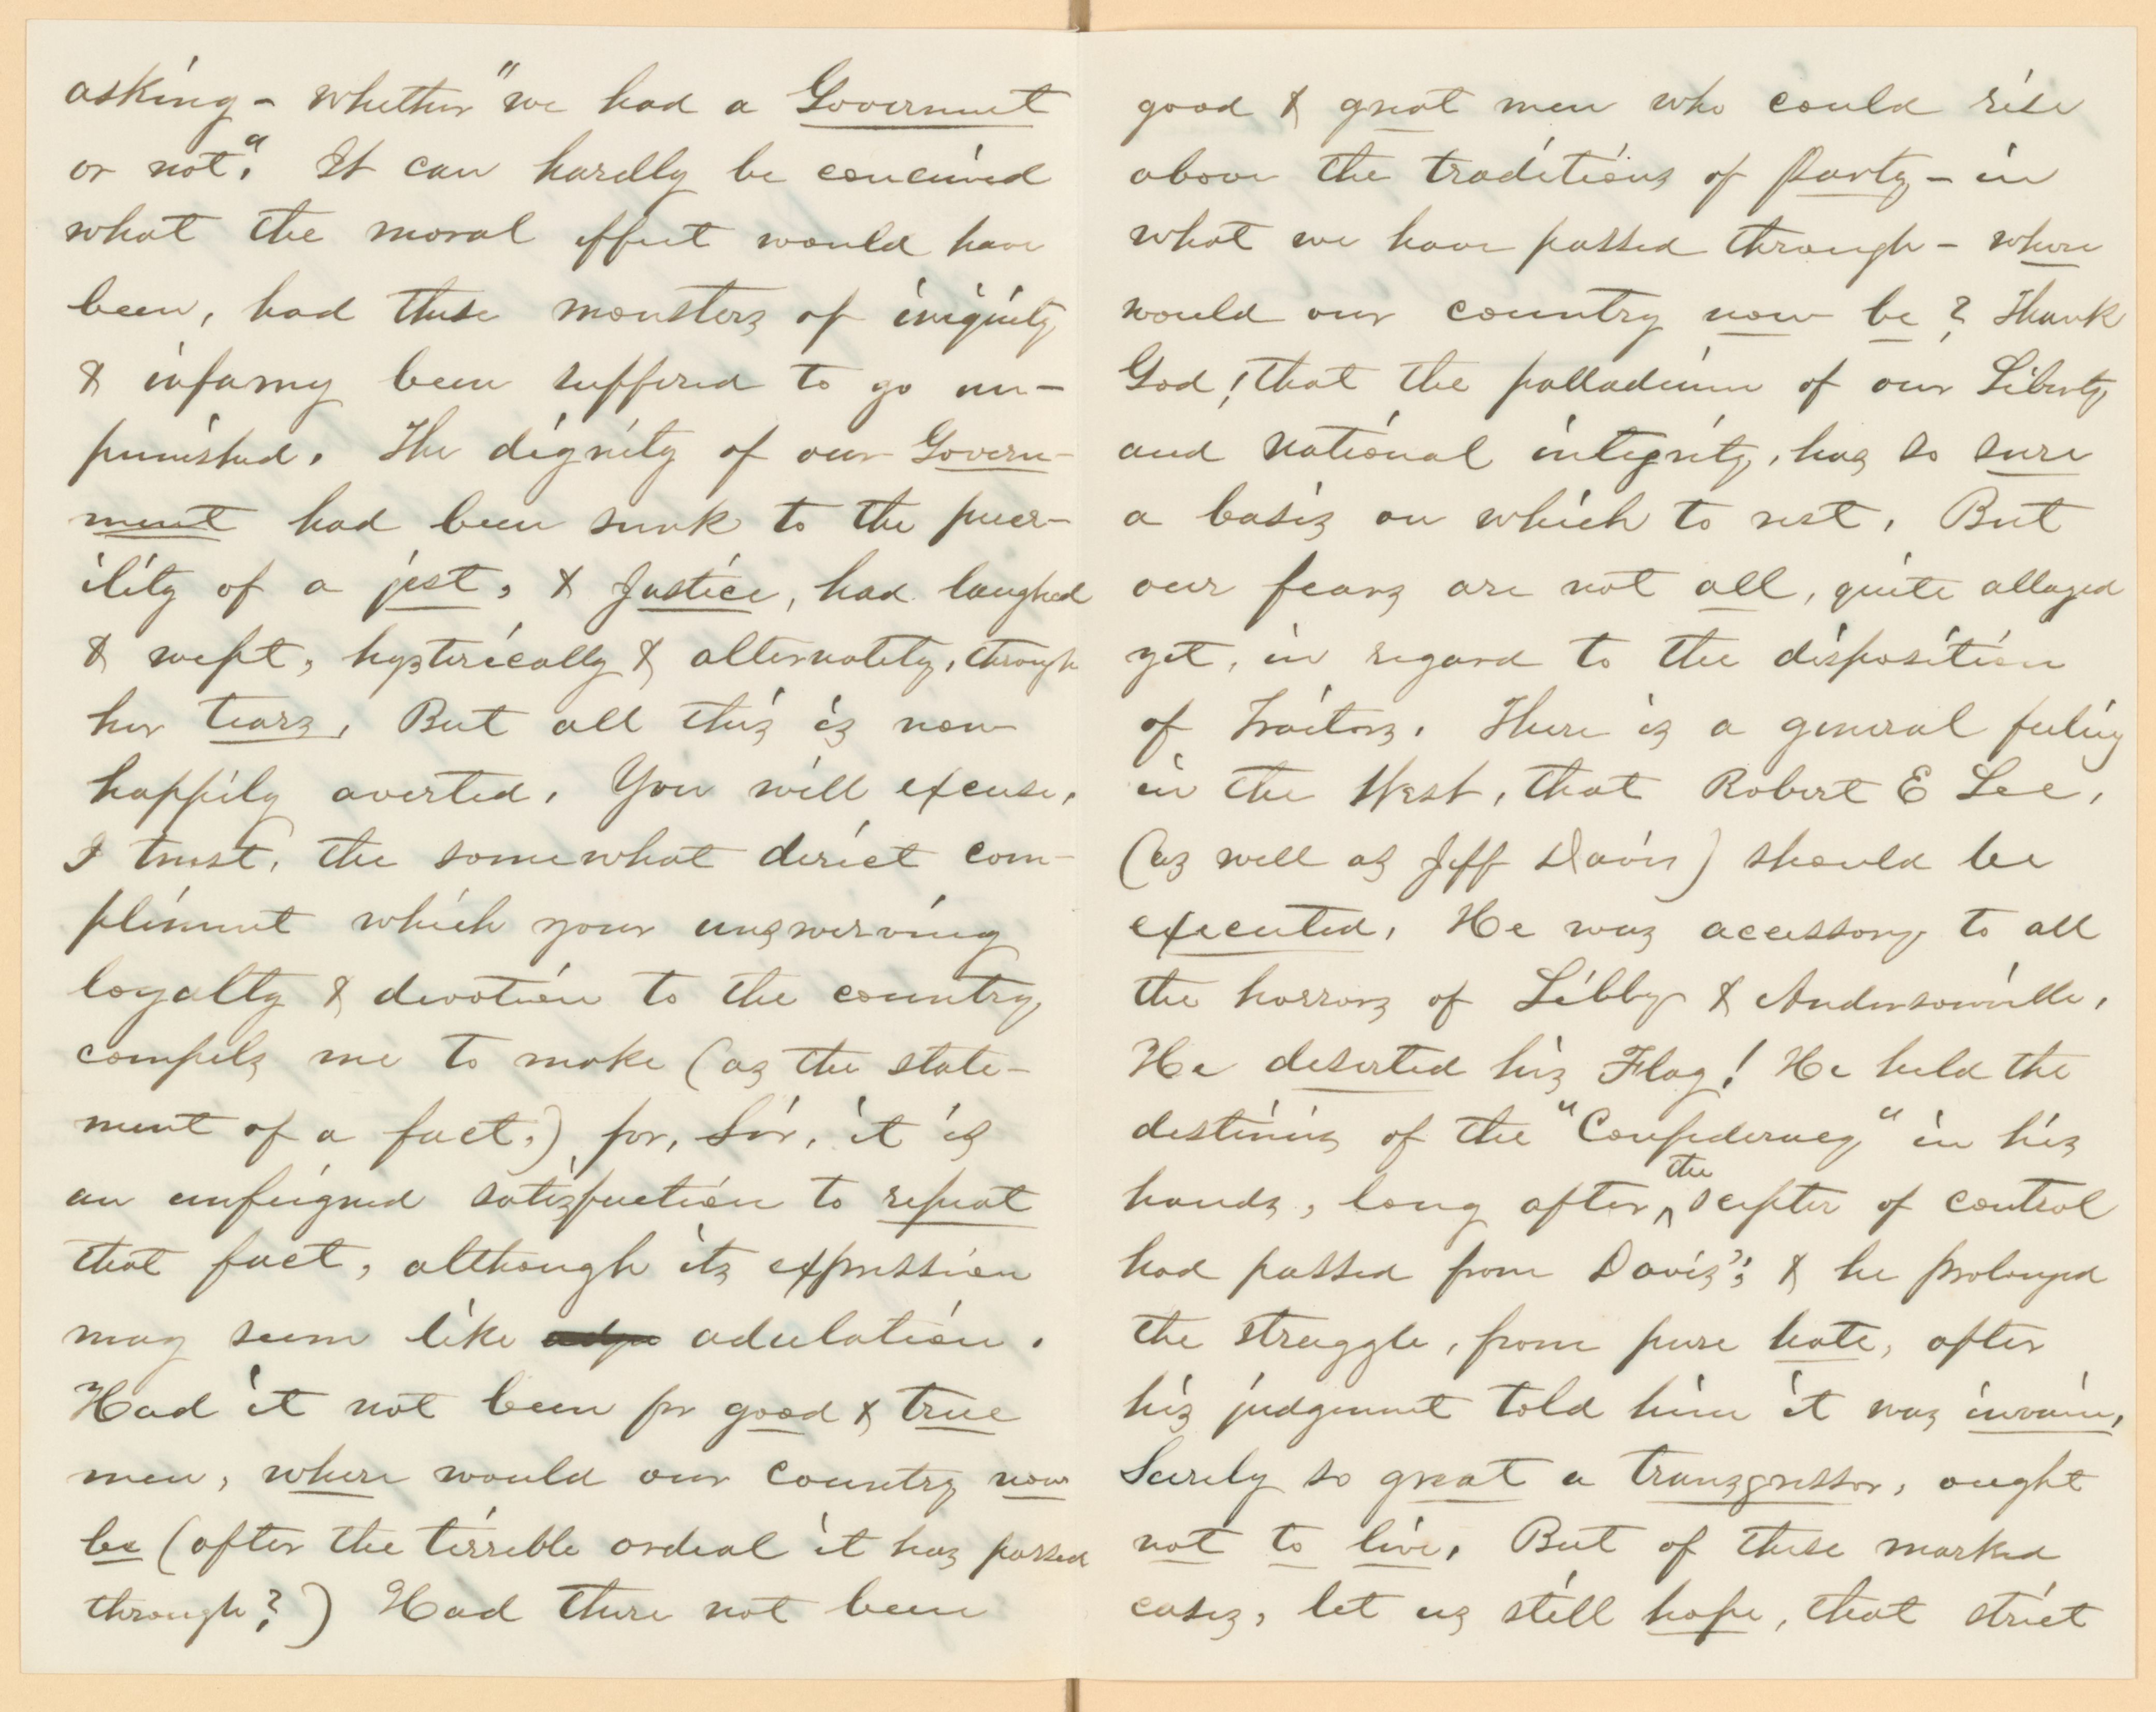 asking - whether "we had a Government
or not." It can hardly be conceived
what the moral effect would have
been, had these monsters of iniquity
& infamy been suffered to go un-
punished. The dignity of our Govern-
ment had been sunk to the puer-
ility of a jest, & Justice, had laughed
& wept, hysterically & alternately, through
her tears. But all this is now
happily averted. You will excuse,
I trust, the somewhat direct com-
pliment which your unswerving
loyalty & devotion to the country,
compels me to make (as the state-
ment of a fact.) for, Sir, it is
an unfeigned satisfaction to repeat
that fact, although its expression
may seem like adulation.
Had it not been for good & true
men, where would our country now
be (after the terrible ordeal it has passed
through?) Had there not been
good & great men who could rise
above the traditions of Party - in
what we have passed through - where
would our country now be? Thank
God! that the palladium of our Liberty,
and national integrity, has so sure
a basis on which to rest. But
our fears are not all, quite allayed
yet, in regard to the disposition
of Traitors. There is a general feeling
in the West, that Robert E Lee,
(as well as Jeff Davis) should be
executed. He was accessory to all
the horrors of Libby & Andersonville.
He deserted his Flag! He held the
destinies of the "Confederacy" in his
hands, long after the scepter of control
had passed from Davis'; & he prolonged
the struggle, from pure hate, after
his judgement told him it was invain.
Surely so great a transgressor, ought
not to live. But of these marked
cases, let us still hope, that strict